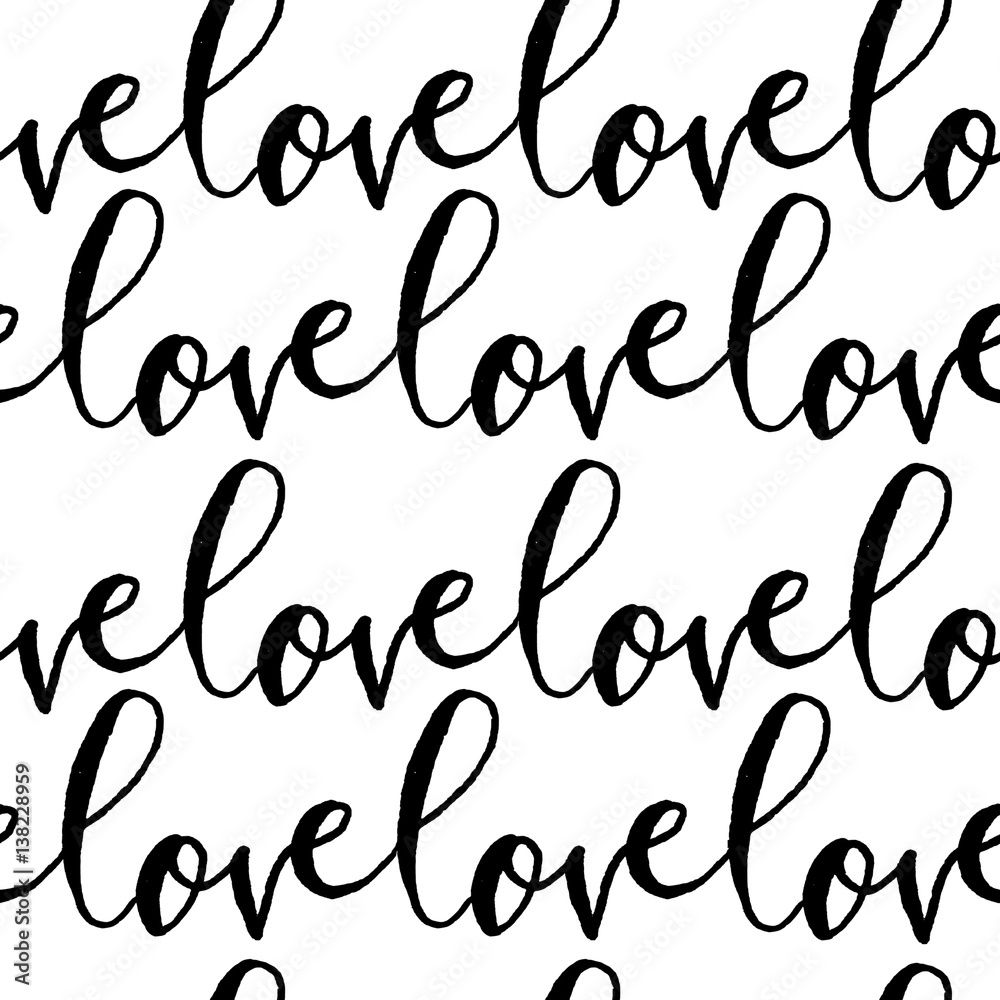 velovelovelo
elovelovelove
velovelovelo
elovelovelove
Adobe Stock | #138228959